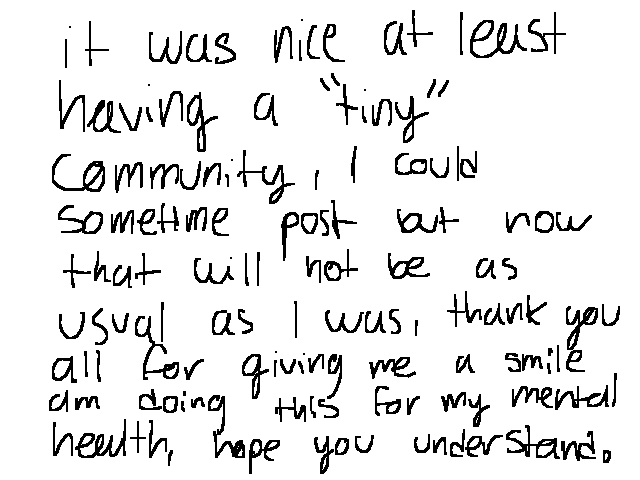 it was nice at least
having a "tiny"
community, I could
sometime post but now
that will not be as
usual as I was, thank you
all for giving me a smile
am doing this for my mental
health, hope you understand.